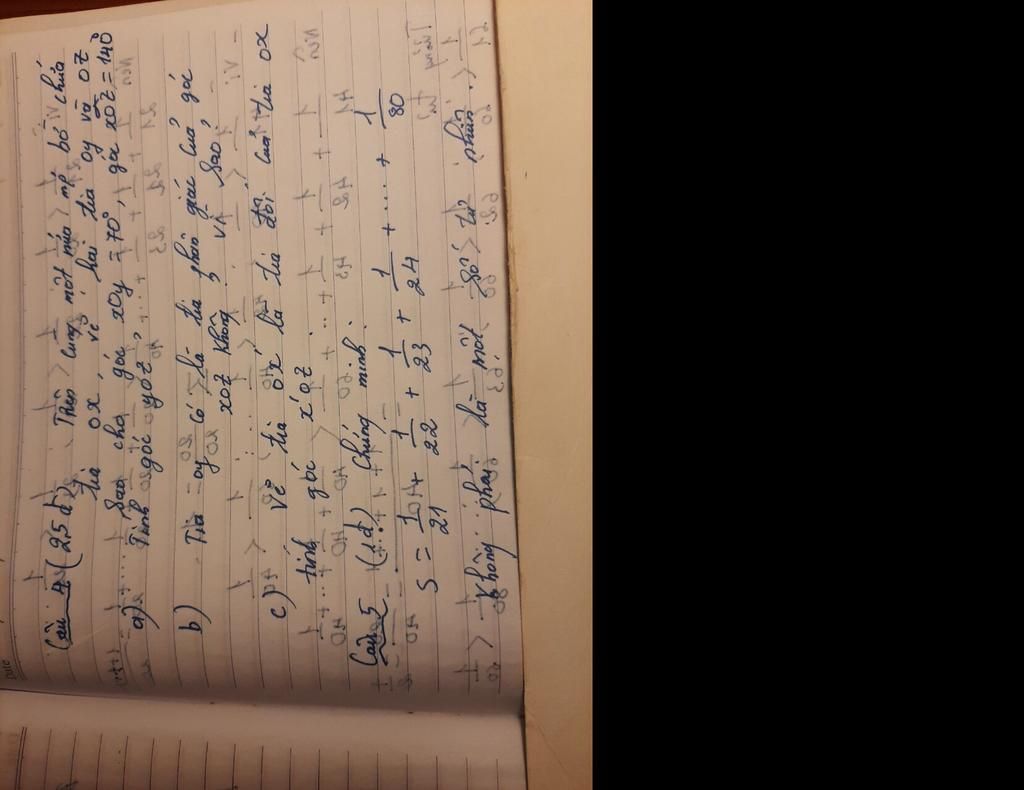 Câu 4 (2,5 đ) Trên cùng một nửa mp bờ chứa
tia ox, vẽ hai tia oy và oz
sao cho góc xOy = 70°, góc xOz = 140°
a) Tính góc yoz,
b) Tia oy có là tia phân giác của góc
xoz không? vì sao?
c) Vẽ tia ox' là tia đối của tia ox
tính góc x'oz
Câu 5 (1đ) Chứng minh.
S = 1/21 + 1/22 + 1/23 + 1/24 + .... + 1/80
Không phải là một số tự nhiên.